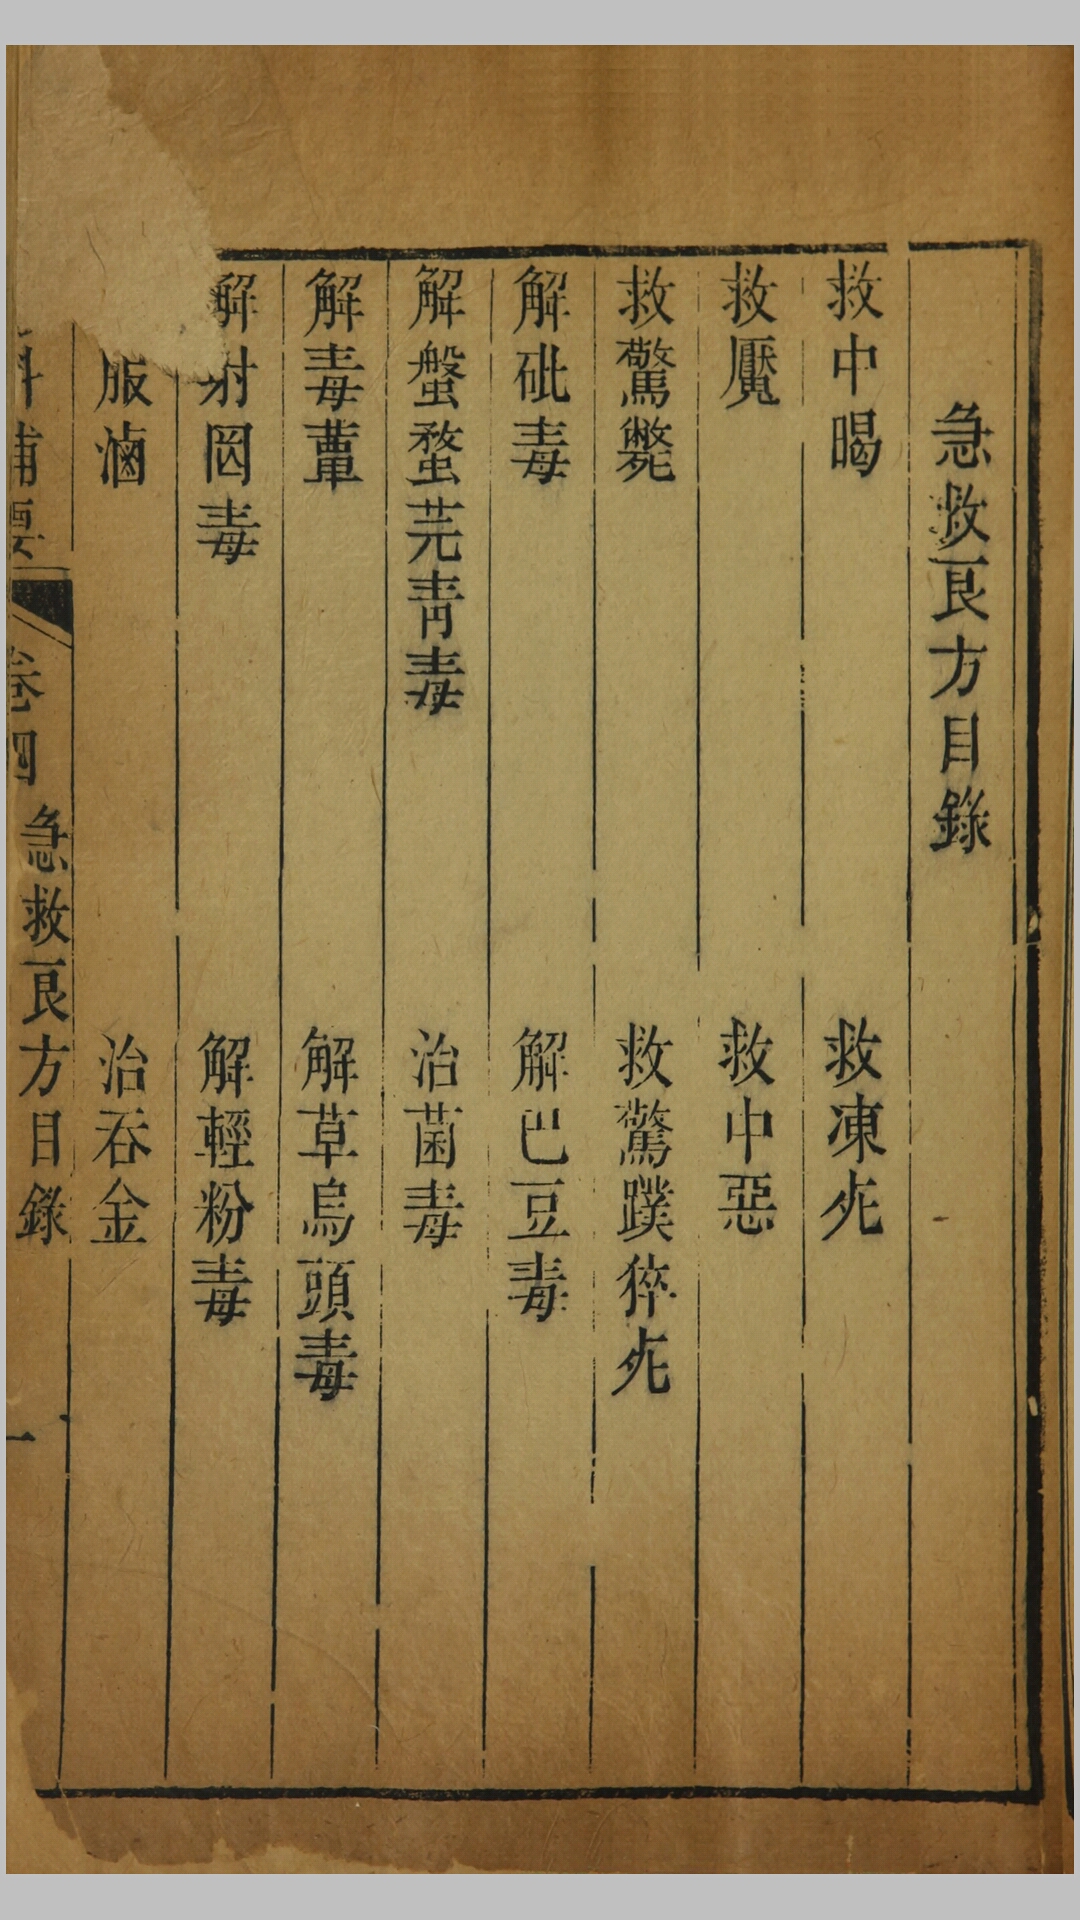 急救良方目錄
救中暍
救凍死
救魘
救中惡
救驚斃
救驚蹼猝死
解砒毒
解巴豆毒
解螌蝥芫青毒
治菌毒
解毒蕈
解草烏頭毒
解射罔毒
解輕粉毒
服滷
治吞金
科補要
卷四
急救良方目錄
一